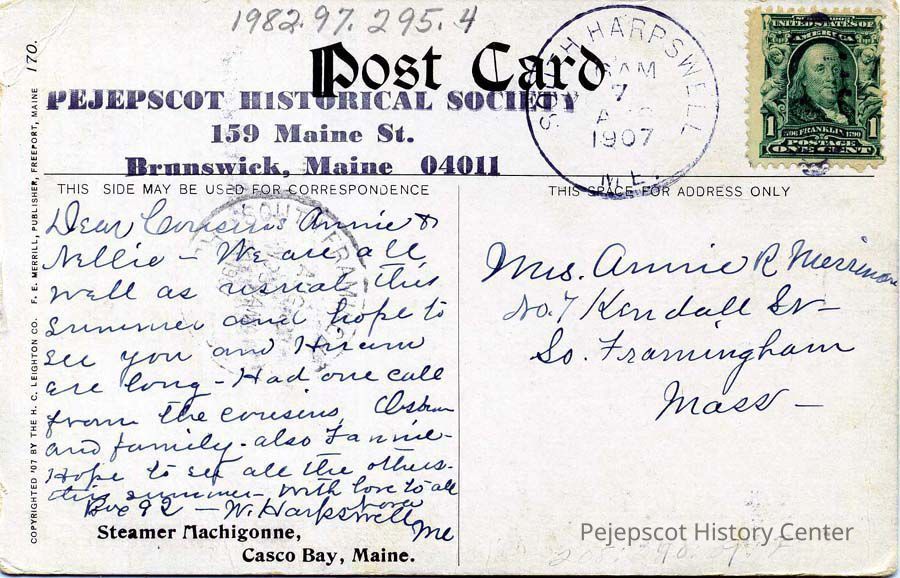 1982.97.295.4
170.
Post Card
PEJEPSCOT HISTORICAL SOCIETY
159 Maine St.
Brunswick, Maine 04011
SOUTH HARPSWELL
AM
7
1907
ME.
UNITED STATES OF
AMERICA
1 1
FRANKLIN
POSTAGE
ONE CENT
THIS SIDE MAY BE USED FOR CORRESPONDENCE
Dear Cousins Annie &
Nellie - We are all
well as usual this
summer and hope to
see you and Hiram
ere long - Had one call
from the cousins,
and family - also Fannie -
Hope to see all the others -
this summer - with love to all
Box 92 - W. Harpswell
Me
Steamer Machigonne,
Casco Bay, Maine.
COPYRIGHTED '07 BY THE H. C. LEIGHTON CO. F. E. MERRILL, PUBLISHER, FREEPORT, MAINE
THIS SPACE FOR ADDRESS ONLY
Mrs. Annie R Merriman
No. 7 Kendall St -
So. Framingham
Mass -
Pejepscot History Center